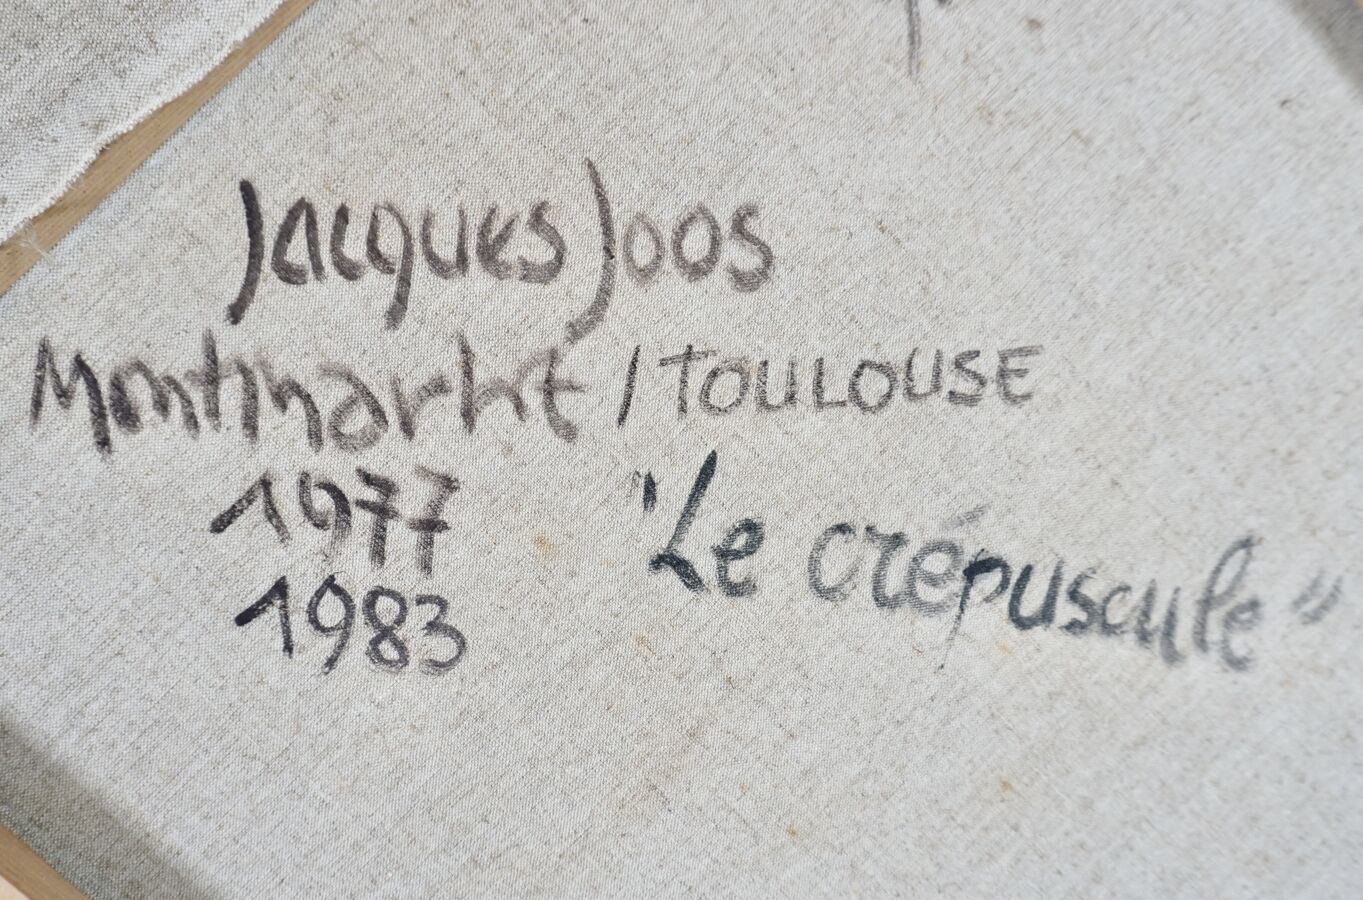 Jacques Joos
Montmartre / TOULOUSE
1977
1983
"Le crépuscule"